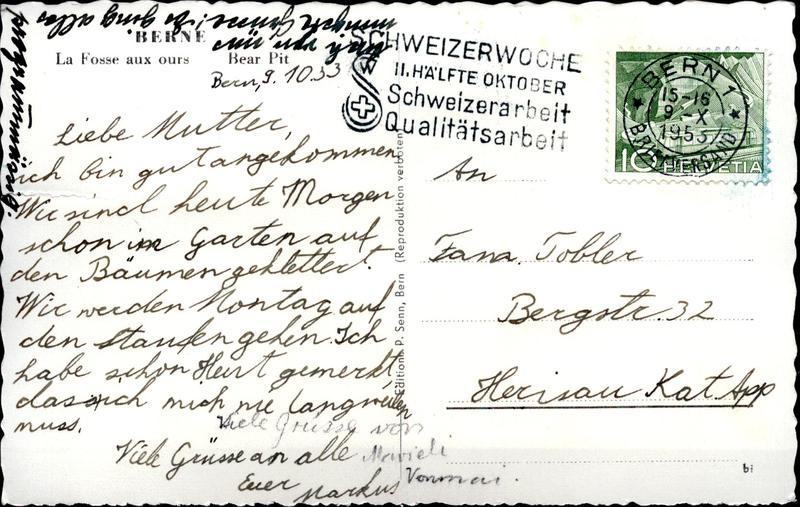 BERNE
La Fosse aux ours Bear Pit
Bern, 9. 10 53
Liebe Mutter,
ich bin gut angekommen
Wir sind heute Morgen
schon im Garten auf
den Bäumen geklettert.
Wir werden Montag auf
den Staufen gehen. Ich
habe schon Heut gemerkt
dass ich mich nie langweilen
muss.
Viele Grüsse an alle
Euer Markus
Viele Grüsse von
ging alles
programmässig.
Edition: P. Senn, Bern (Reproduktion verboten)
SCHWEIZERWOCHE
II. HÄLFTE OKTOBER
Schweizerarbeit
Qualitätsarbeit
BERN 1
15-16
9.-X
1953
BRIEFVERSAND
10 HELVETIA
An
Fam. Tobler
Bergstr. 32
Herisau Kat. App
bi